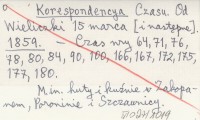 Korespondencya Czasu. Od
Wieliczki 15 marca [i następne].
1859. — Czas nry 64, 71, 76,
78, 80, 84, 90, 100, 166, 167, 172, 175,
177, 180.
M. in. huty i kuźnie w Zakopa-
nem, Poroninie i Szczawnicy.